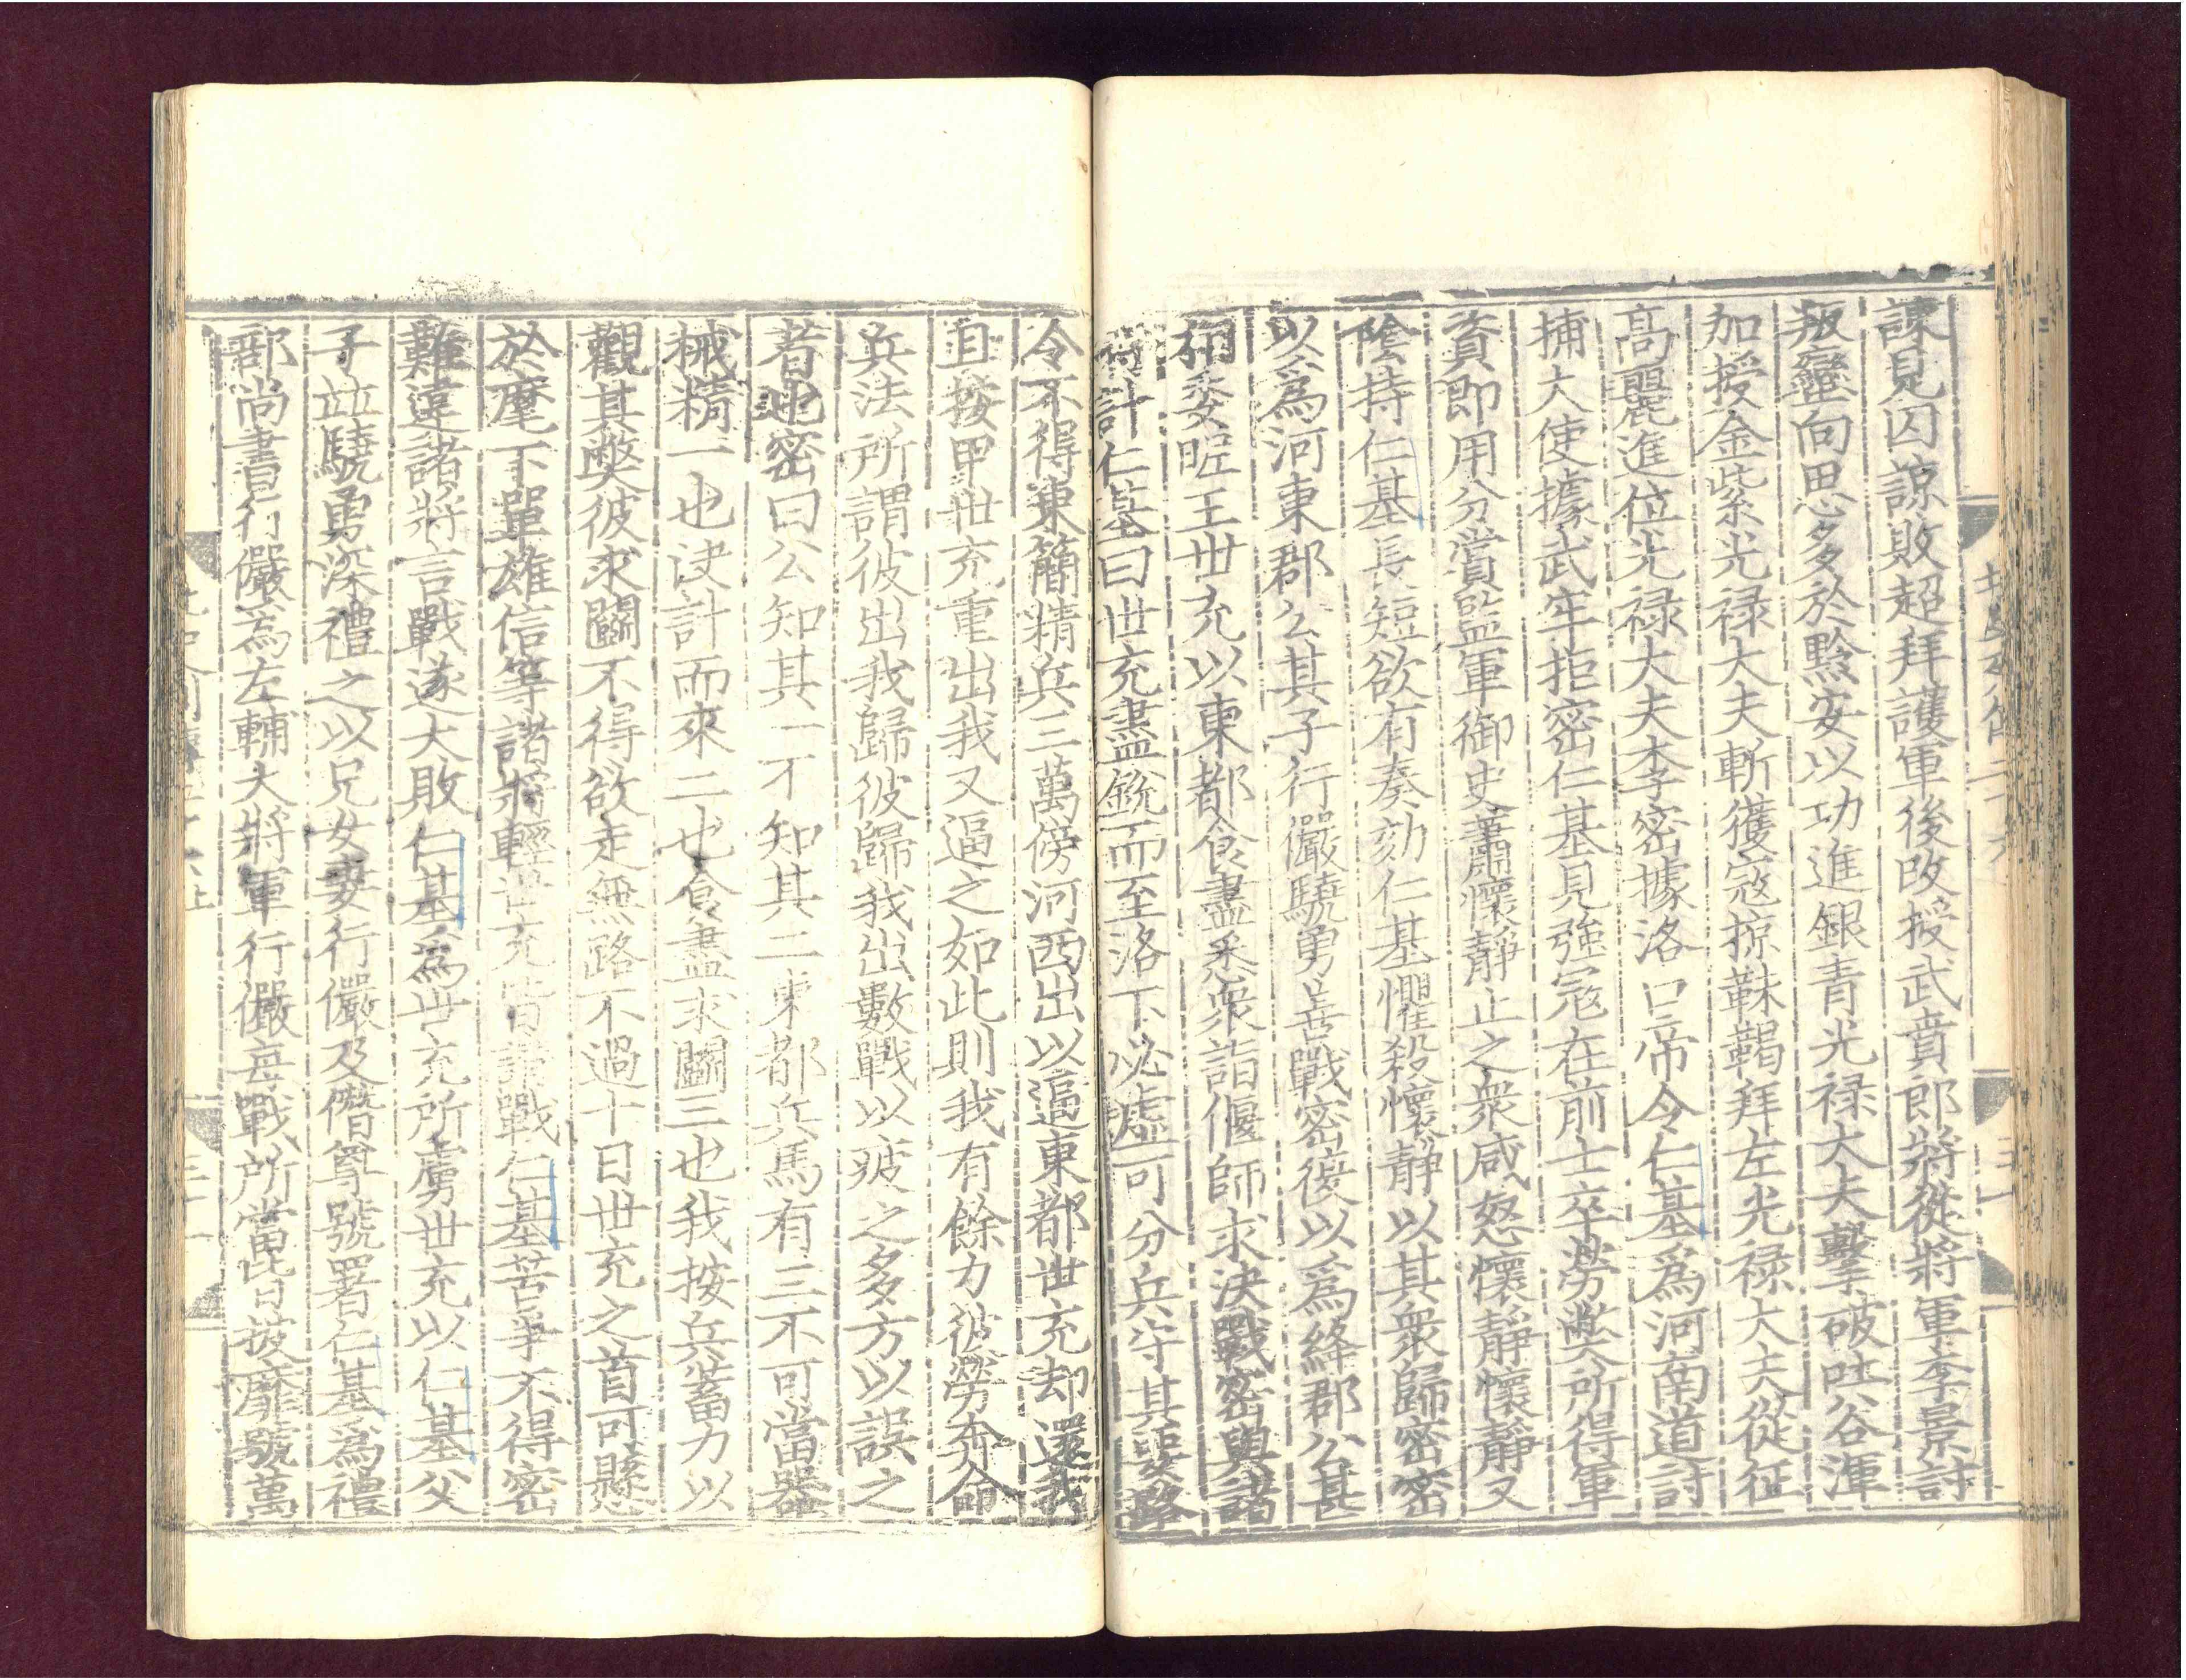 諫見囚諒敗超拜護軍後改授武賁郎將從將軍李景討
叛蠻向思多於黔安以功進銀青光禄大夫擊破吐谷渾
加授金紫光禄大夫斬獲寇掠靺鞨拜左光禄大夫從征
髙麗進位光禄大夫李密據洛口帝令仁基爲河南道討
捕大使據武牢拒密仁基見強寇在前士卒勞獘所得軍
資即用分賞監軍御史蕭懷静止之衆咸怒懷静懷静又
陰持仁基長短欲有奏劾仁基懼殺懷静以其衆歸密密
以爲河東郡公其子行儼驍勇善戰密復以爲絳郡公甚
相委昵王世充以東都食盡悉衆詣偃師求決戰密與諸
計仁基曰世充盡銳而至洛下必虚可分兵守其要路
令不得東簡精兵三萬傍河西出以逼東都世充却還我
且按甲世充重出我又逼之如此則我有餘力彼勞奔命
兵法所謂彼出我歸彼歸我出數戰以疲之多方以誤之
者也密曰公知其一不知其二東都兵馬有三不可當器
械精一也决計而來二也食盡求鬭三也我按兵蓄力以
觀其獘彼求鬭不得欲走無路不過十日世充之首可懸
於麾下單雄信等諸將輕世充皆請戰仁基苦爭不得密
難違諸將言戰遂大敗仁基爲世充所虜世充以仁基父
子並驍勇深禮之以兄女妻行儼及僭尊號署仁基爲禮
部尚書行儼爲左輔大將軍行儼每戰所當皆披靡號萬